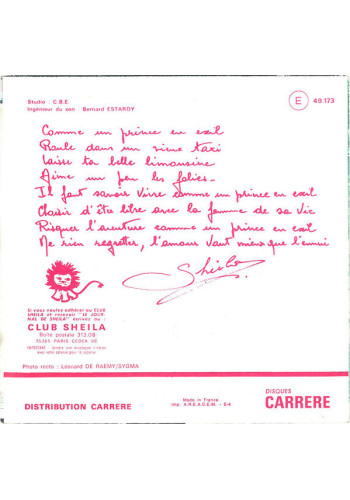 Studio : C.B.E.
Ingénieur du son : Bernard ESTARDY
E
49.173
Comme un prince en exil
Roule dans un vieux taxi
Laisse ta belle limousine
Aime un peu les folies
Il faut savoir vivre comme un prince en exil
Choisir d'être libre avec la femme de sa vie
Risquer l'aventure comme un prince en exil
Ne rien regretter, l'amour vaut mieux que l'ennui
Sheila
Si vous voulez adhérer au CLUB
SHEILA et recevoir "LE JOUR-
NAL DE SHEILA" écrivez au :
CLUB SHEILA
Boîte postale 312.08
75365 PARIS CEDEX 08
IMPORTANT : Joindre une enveloppe timbrée
avec votre adresse pour la réponse
Photo recto : Léonard DE RAEMY/SYGMA
DISTRIBUTION CARRERE
Made in France
Imp. A.R.E.A.C.E.M. - E-4
DISQUES
CARRERE